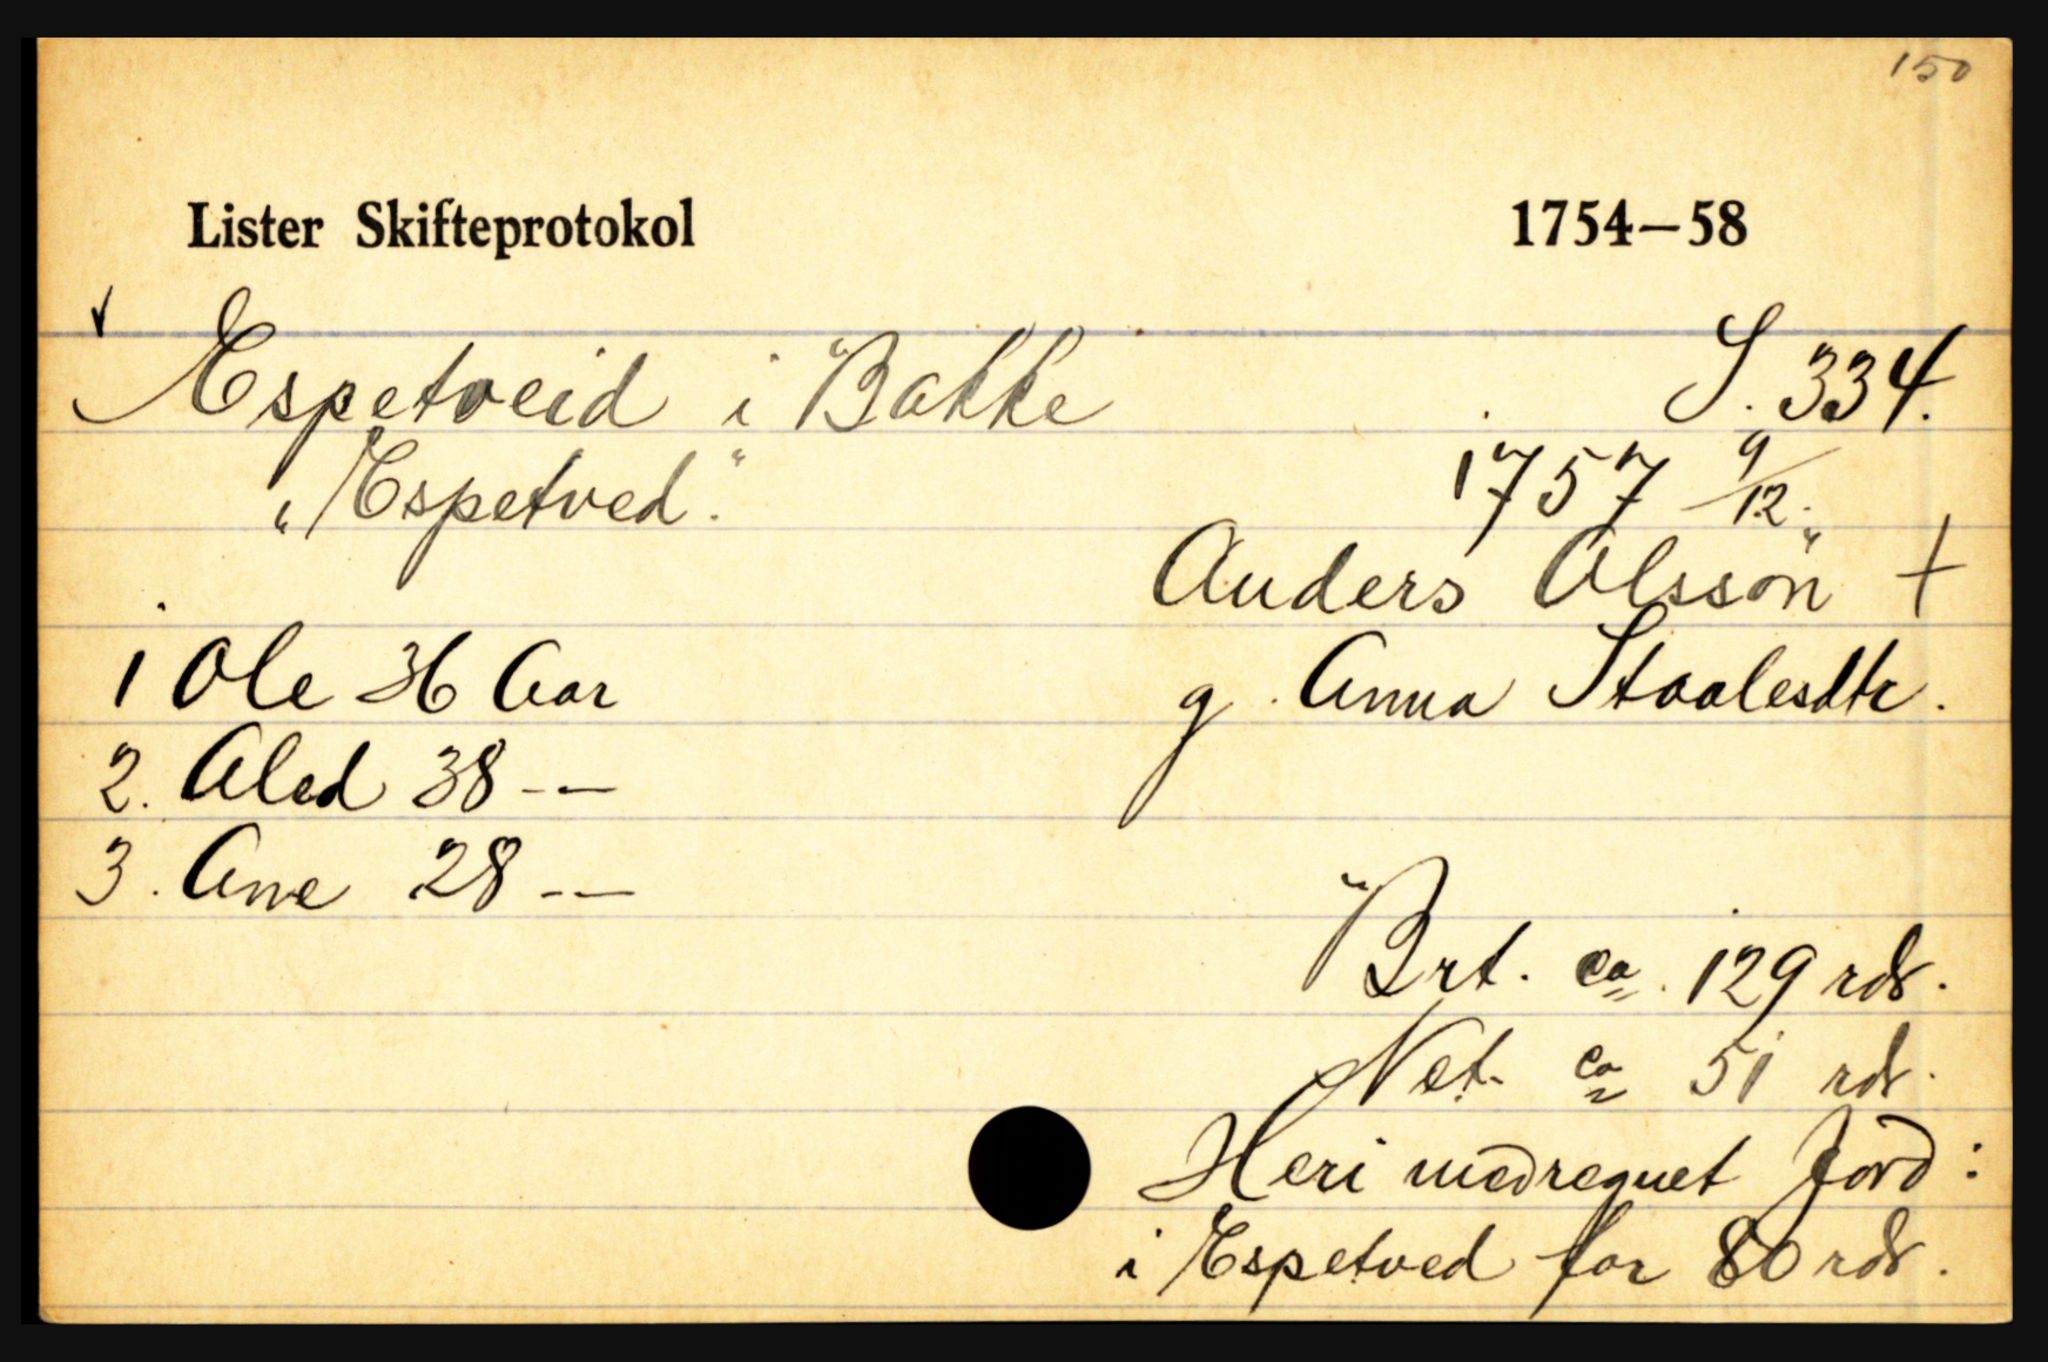 150
Lister Skifteprotokol 1754–58
Espetveid i Bakke S. 334.
„Espetved." 1757 9/12.
Anders Olsson +
1 Ole 36 Aar g. Anna Staalesdtr.
2. Aled 38 --
3. Ane 28 --
Brt. ca. 129 rdr.
Net. ca 51 rdr.
Heri medregnet Jord:
i Espetved for 80 rdr.